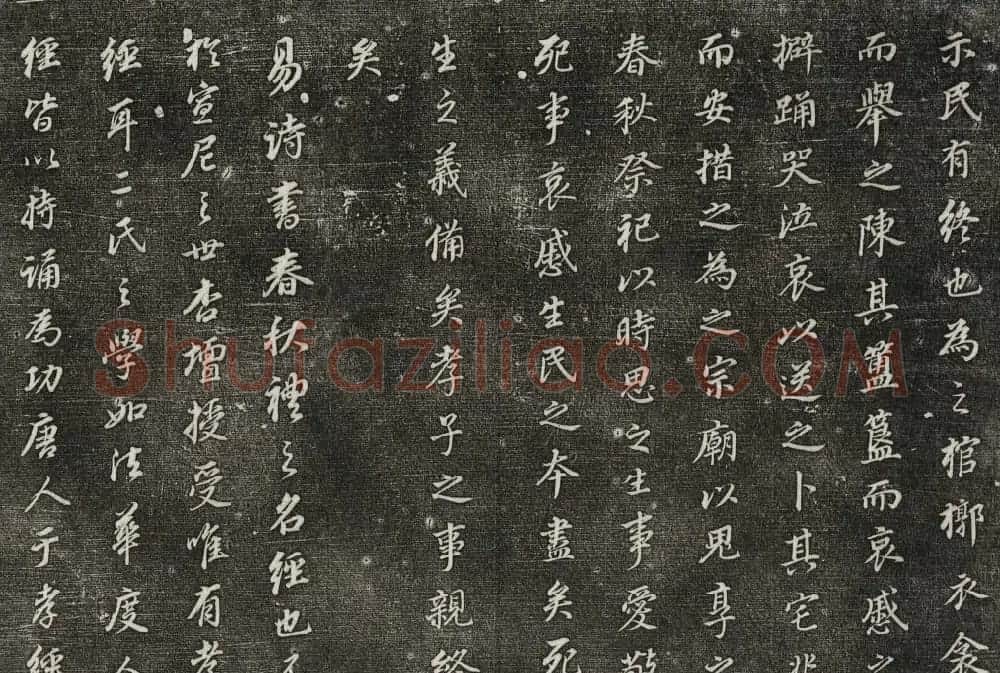 示民有終也為之棺槨衣衾
而舉之陳其簠簋而哀慼之
擗踊哭泣哀以送之卜其宅兆
而安措之為之宗廟以鬼享之
春秋祭祀以時思之生事愛敬
死事哀慼生民之本盡矣死
生之義備矣孝子之事親終
矣
易詩書春秋禮之名經也
於宣尼之世杏壇授受唯有孝
經耳二氏之學如法華度人
經皆以持誦為功唐人于孝經
Shufaziliao.COM